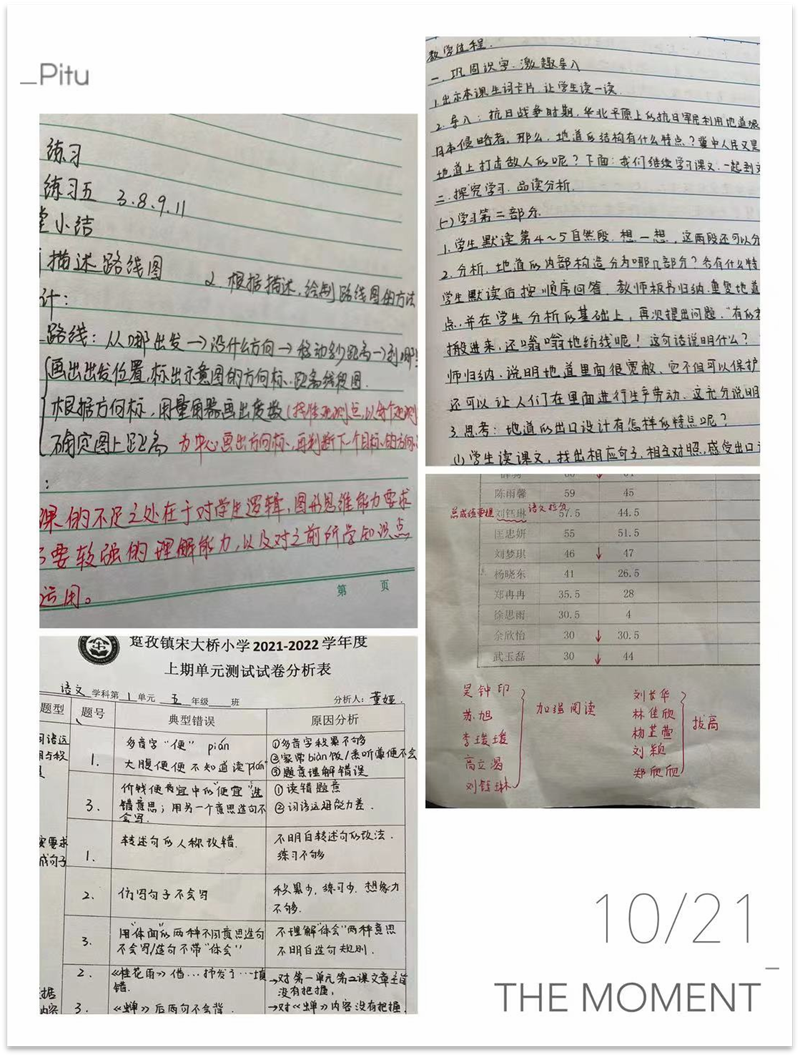 _Pitu
练习
练习五 3.8.9.11
堂小结
描述路线图 2.根据描述,绘制路线图的方法
计:
路线:从哪出发→沿什么方向→移动多少距离→到哪
画出出发位置,标出示意图的方向标、距离线段图.
根据方向标,用量角器画出度数
确定图上距离 为中心画出方向标,再判断下一个目标的方向
:
课的不足之处在于对学生逻辑,图形思维能力要求
要较强的理解能力,以及对之前所学知识点
运用。
第 页
教学过程.
一、巩固识字.激趣导入
1.出示本课生词卡片.让学生读一读.
2.导入:抗日战争时期,华北平原上的抗日军民利用地道
日本侵略者,那么,地道的结构有什么特点?冀中人民又是
地道上打击敌人的呢?下面:我们继续学习课文.一起到
二、探究学习.品读分析.
(一)学习第二部分.
1.学生默读第4~5自然段.想一想,这两段还可以分
2.分析.地道的内部构造分为哪几部分?各有什么特
学生默读后按顺序回答.教师板书归纳.重复地道
点,并在学生分析的基础上,再次提出问题."有的
搬进来,还嗡嗡地纺线呢!这句话说明什么?
师归纳:说明地道里面很宽敞.它不但可以保护
还可以让人们在里面进行生产劳动.这充分说明
3.思考:地道的出口设计有怎样的特点呢?
(1)学生读课文,找出相应句子,相互对照,感受出口
陈雨馨 59 45
刘钰琳 57.5 44.5
匡思妍 55 51.5
刘梦琪 46 ↓ 47
杨晓东 41 26.5
郑冉冉 35.5 28
徐思雨 30.5 4
余欣怡 30 ↓ 30.5
武玉磊 30 ↓ 44
吴钟印
苏旭
李瑷瑗
刘钰琳
加强阅读
刘长华
林佳欣
杨芷萱
刘颖
郑欣欣
拔高
逗孜镇宋大桥小学2021-2022学年度
上期单元测试试卷分析表
语文 学科第 1 单元 五 年级 班 分析人:董娅
题型 题号 典型错误 原因分析
1. 多音字"便" pián ①多音字积累不够
大腹便便不知道读pián ②家常biàn饭/悉听尊便不会
③题意理解错误
3. 价钱便宜中的"便宜"选 ①读错题意
错意思;用另一个意思造句不 ②词语运用能力差.
会写.
1. 转述句的人称改错. 不明白转述句的改法.
练习不够
2. 仿写句子不会写 积累少,练习少.想象力
不够.
3. 用"体面"的两种不同意思造句 不理解"体会"两种意思
不会写/造句不带"体会" 不明白造句规则.
2. 《桂花雨》借…抒发了…填 →对第一单元第二课文章主旨
错. 没有把握.
3. 《蝉》后两句不会背. →对《蝉》内容没有把握.
10/21
THE MOMENT